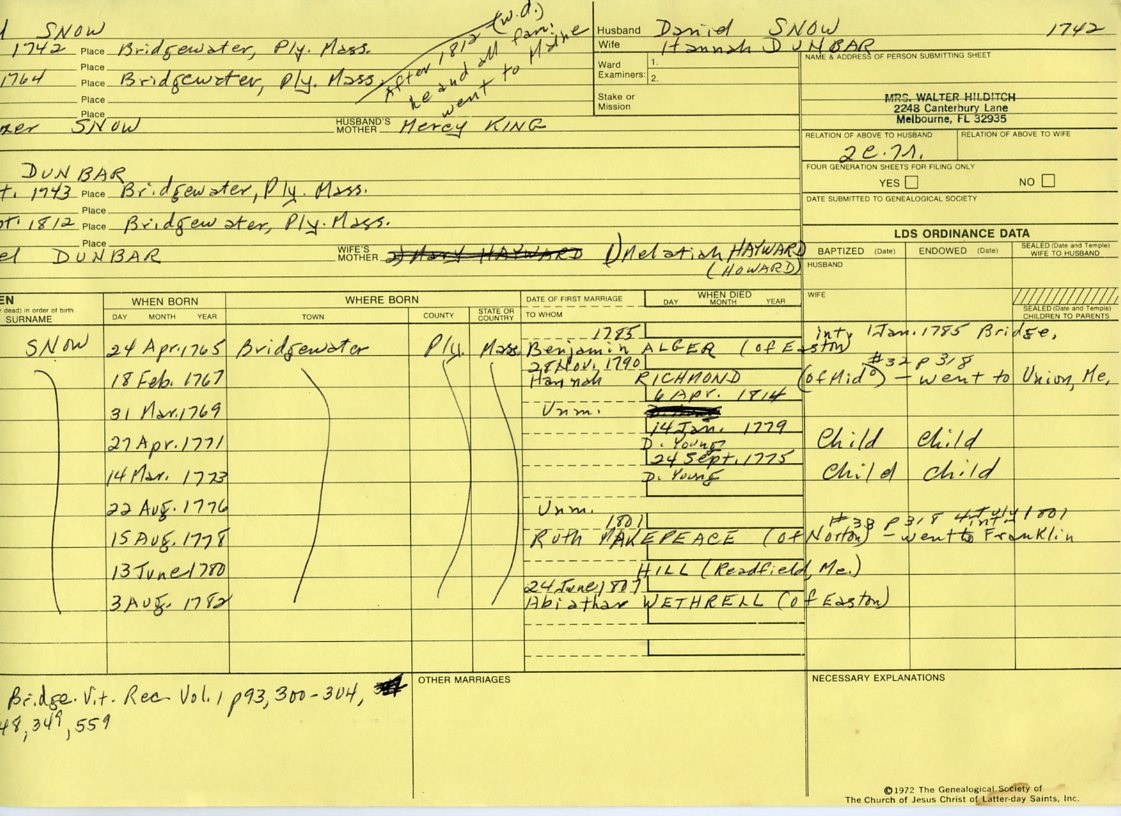 SNOW
1742 Place Bridgewater, Ply. Mass.
1764 Place Bridgewater, Ply. Mass.
Place
Place
After 1812 (w.d.)
he and all fam.
went to Maine
SNOW HUSBAND'S MOTHER Mercy KING
Husband Daniel SNOW 1742
Wife Hannah DUNBAR
Ward Examiners: 1.
2.
Stake or Mission
NAME & ADDRESS OF PERSON SUBMITTING SHEET
MRS. WALTER HILDITCH
2248 Canterbury Lane
Melbourne, FL 32935
RELATION OF ABOVE TO HUSBAND RELATION OF ABOVE TO WIFE
FOUR GENERATION SHEETS FOR FILING ONLY
YES NO
DATE SUBMITTED TO GENEALOGICAL SOCIETY
DUNBAR
t. 1743 Place Bridgewater, Ply. Mass.
pt. 1812 Place Bridgewater, Ply. Mass.
Place
el DUNBAR WIFE'S MOTHER 2) Mary HAYWARD 1) Melatiah HAYWARD
(HOWARD)
LDS ORDINANCE DATA
BAPTIZED (Date) ENDOWED (Date) SEALED (Date and Temple) WIFE TO HUSBAND
HUSBAND
WIFE
SEALED (Date and Temple) CHILDREN TO PARENTS
EN
dead) in order of birth
SURNAME
WHEN BORN
DAY MONTH YEAR
WHERE BORN
TOWN COUNTY STATE OR COUNTRY
DATE OF FIRST MARRIAGE
TO WHOM
WHEN DIED
DAY MONTH YEAR
1785 inty 1 Jan. 1785 Bridge.
SNOW 24 Apr. 1765 Bridgewater Ply. Mass. Benjamin ALGER (of Easton)
28 Nov. 1790 #32 p 318
18 Feb. 1767 Hannah RICHMOND (of Mid°) - went to Union, Me.
6 Apr. 1814
31 Mar. 1769 Unm.
14 Jan. 1779
27 Apr. 1771 D. Young Child Child
24 Sept. 1775
14 Mar. 1773 D. Young Child Child
22 Aug. 1776 Unm.
1801 #38 p 318 4 July 1801 int
15 Aug. 1778 Ruth MAKEPEACE (of Norton) - went to Franklin
13 June 1780 HILL (Readfield, Me.)
24 June 1807
3 Aug. 1782 Abiathar WETHRELL (of Easton)
Bridge. Vit. Rec Vol. 1 p 93, 300-304,
48, 349, 559
OTHER MARRIAGES
NECESSARY EXPLANATIONS
©1972 The Genealogical Society of
The Church of Jesus Christ of Latter-day Saints, Inc.